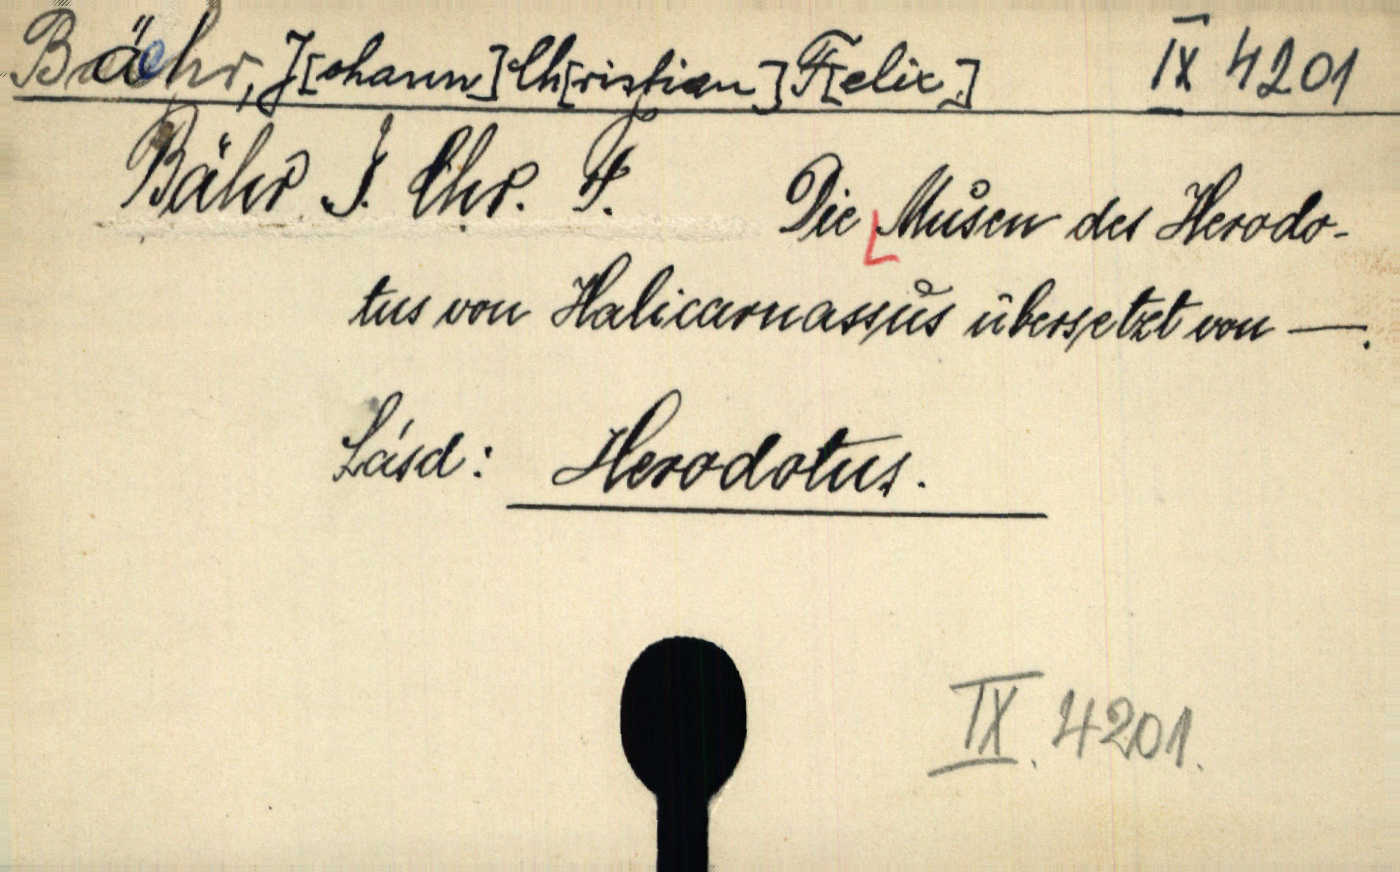 Bähr, J[ohann] Ch[ristian] F[elix.] IX 4201
Bähr J. Chr. F. Die Musen des Herodo-
tus von Halicarnassus übersetzt von —.
Lásd: Herodotus.
IX. 4201.